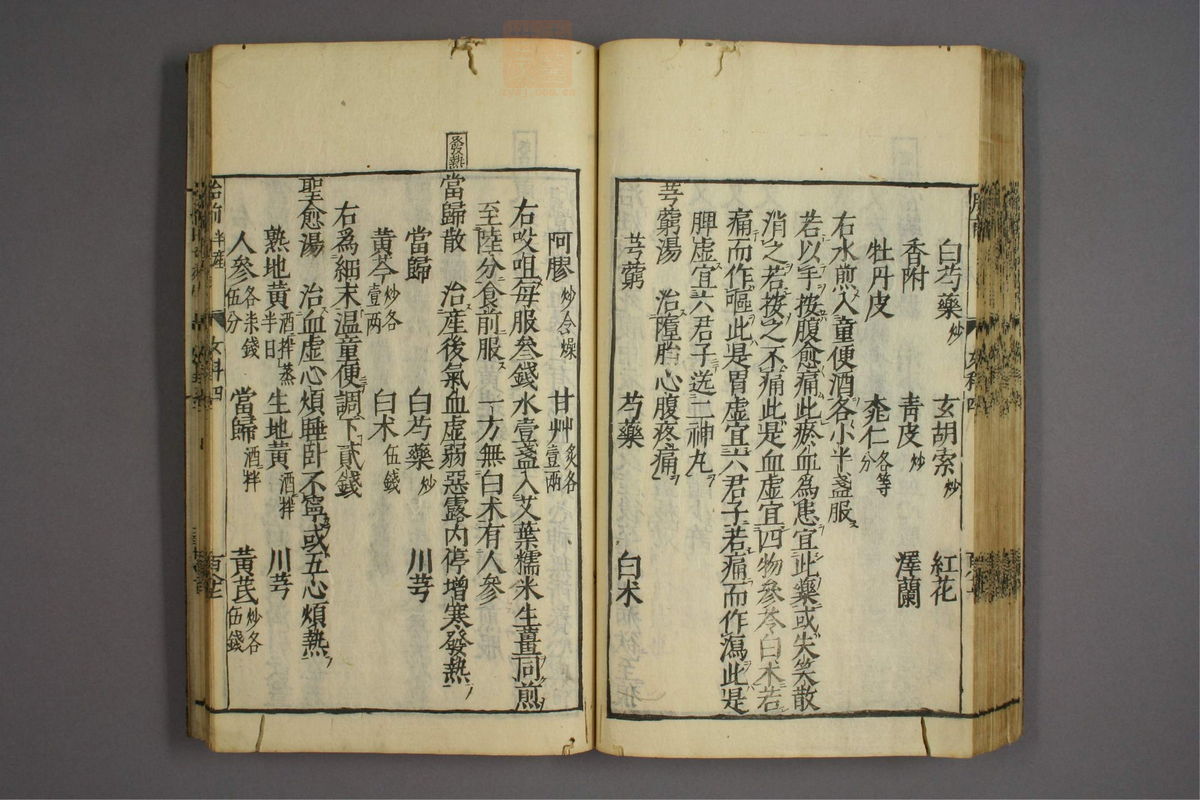 白芍藥炒 玄胡索炒 紅花
香附 青皮炒 澤蘭
牡丹皮 桃仁各等分
右水煎入童便酒各小半盞服
若以手按腹愈痛此瘀血為患宜此藥或失笑散
消之若按之不痛此是血虛宜四物參苓白朮若
痛而作嘔此是胃虛宜六君子若痛而作瀉此是
脾虛宜六君子送二神丸
芎藭湯 治墮胎心腹疼痛
芎藭 芍藥 白朮
阿膠炒令燥 甘艸炙各壹兩
右㕮咀每服叁錢水壹盞入艾葉糯米生薑同煎
至陸分食前服 一方無白朮有人參
發熱
當歸散 治產後氣血虛弱惡露內停增寒發熱
當歸 白芍藥炒 川芎
黃芩炒各壹兩 白朮伍錢
右為細末溫童便調下貳錢
聖愈湯 治血虛心煩睡臥不寧或五心煩熱
熟地黃酒拌蒸半日 生地黃酒拌 川芎
人參各柒錢伍分 當歸酒拌 黃芪炒各伍錢
胎前 半產 女科四